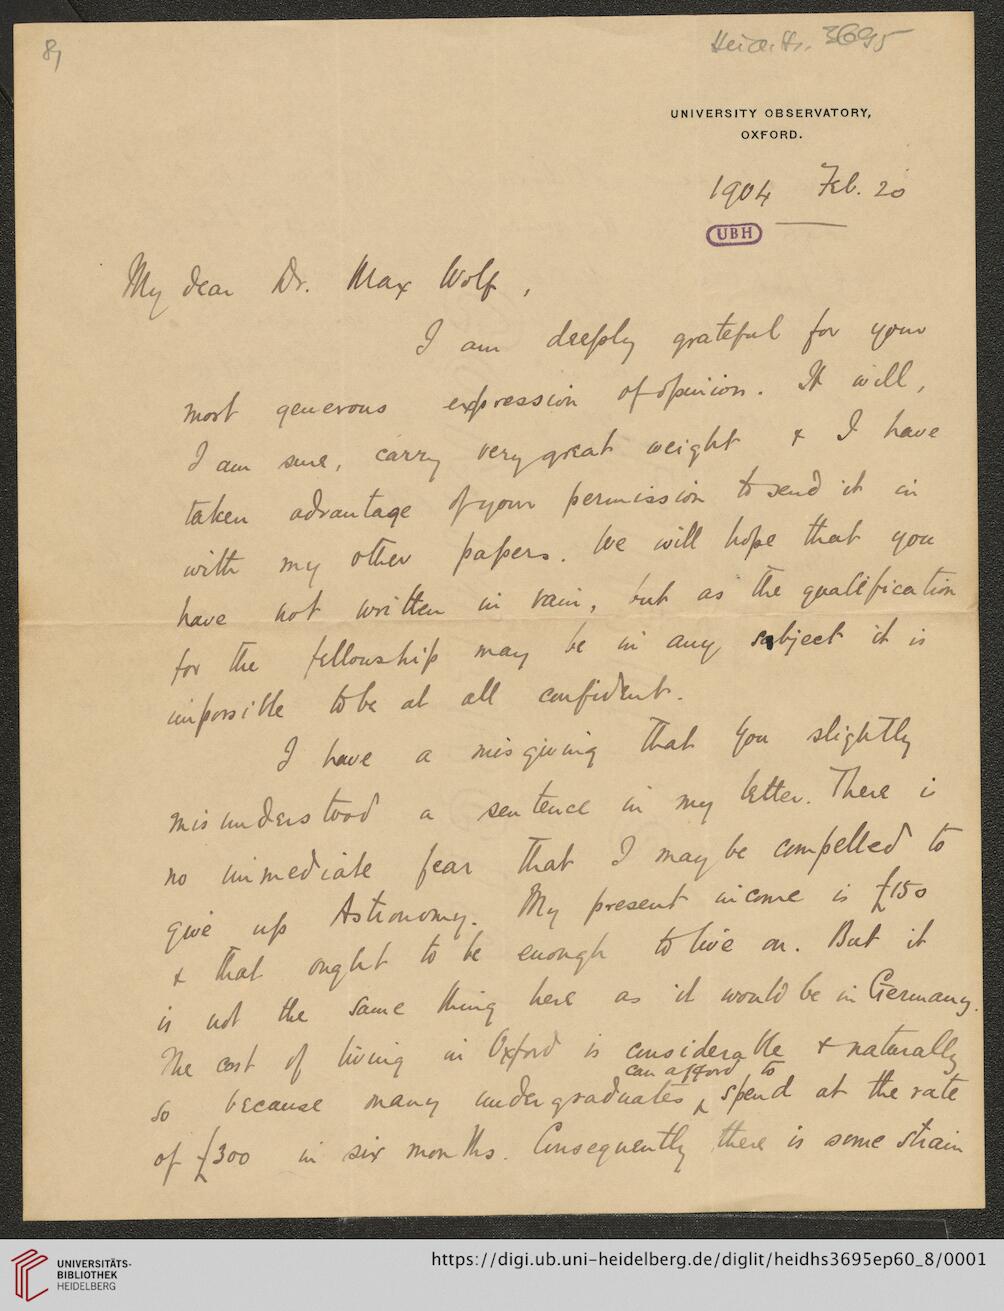 8,
Heid. Hs. 3695
UNIVERSITY OBSERVATORY,
OXFORD.
1904 Feb. 20
UBH
My dear Dr. Max Wolf,
I am deeply grateful for your
most generous expression of opinion. It will,
I am sure, carry very great weight & I have
taken advantage of your permission to send it in
with my other papers. We will hope that you
have not written in vain, but as the qualification
for the fellowship may be in any subject it is
impossible to be at all confident.
I have a misgiving that you slightly
misunderstood a sentence in my letter. There is
no immediate fear that I may be compelled to
give up Astronomy. My present income is £150
& that ought to be enough to live on. But it
is not the same thing here as it would be in Germany.
The cost of living in Oxford is considerable & naturally
so because many undergraduates can afford to spend at the rate
of £300 in six months. Consequently there is some strain
UNIVERSITÄTS-
BIBLIOTHEK
HEIDELBERG
https://digi.ub.uni-heidelberg.de/diglit/heidhs3695ep60_8/0001